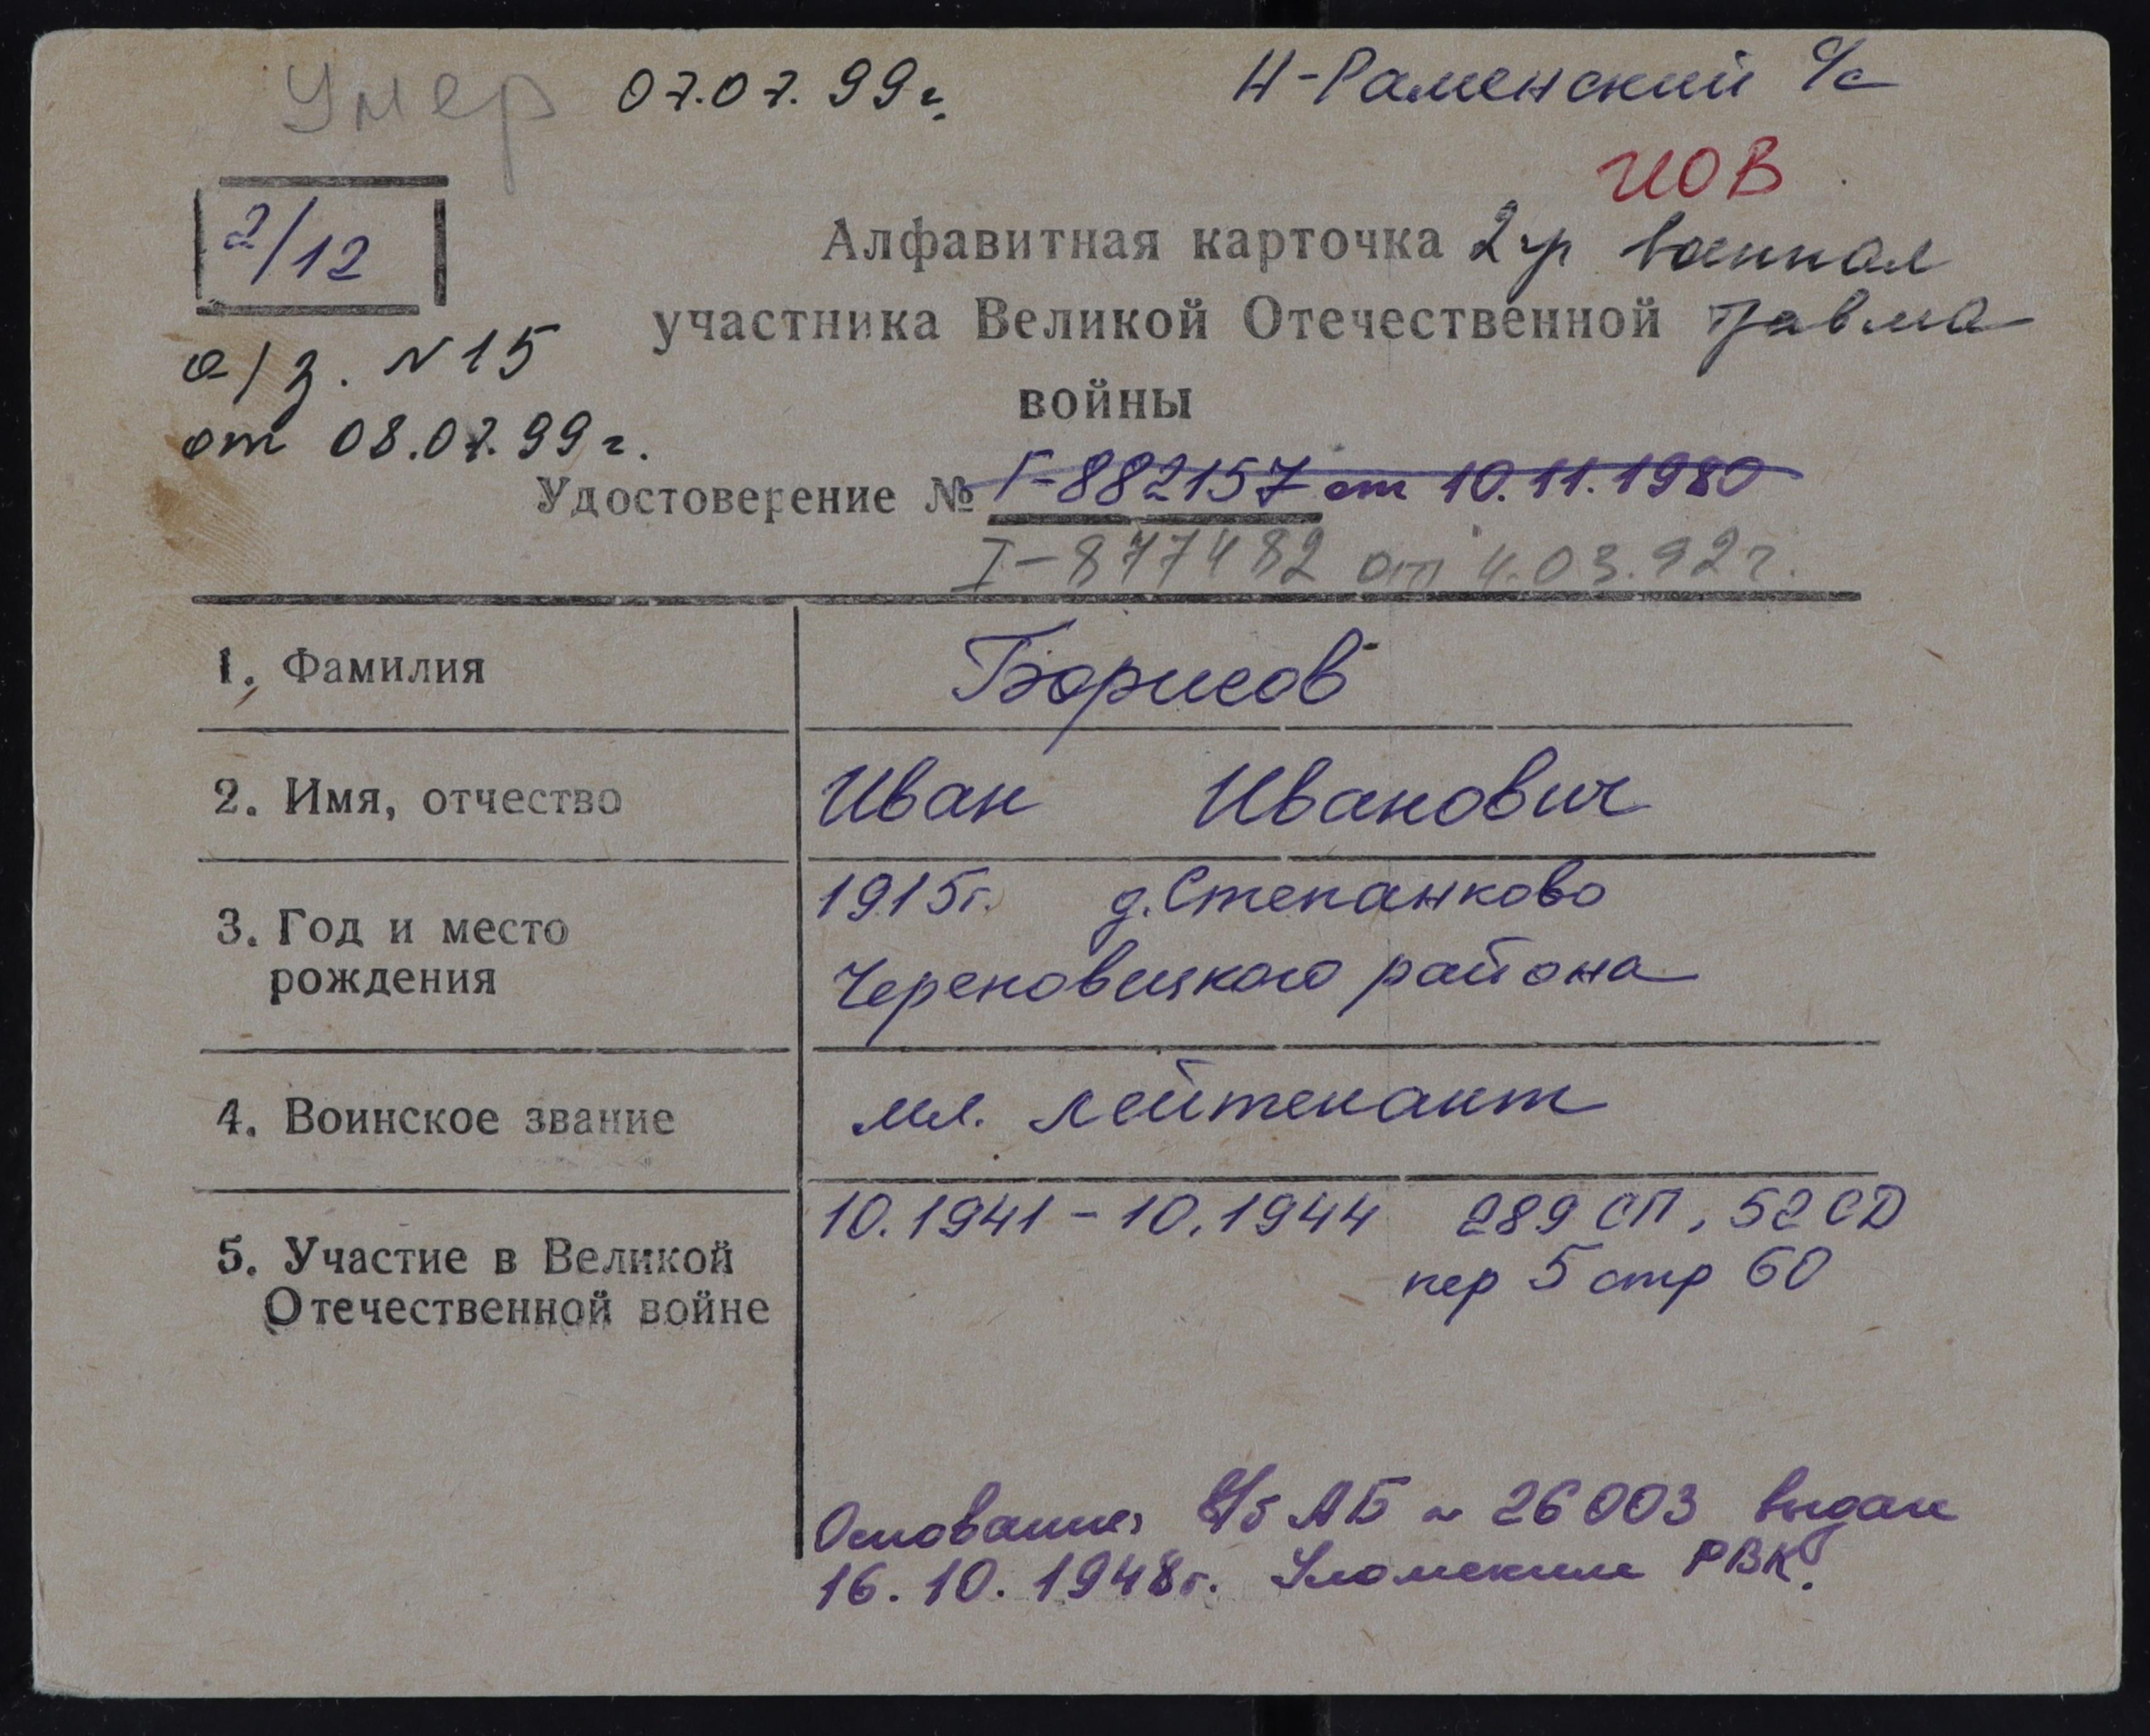 Умер 07.07.99г.
Н-Раменский с/с
ИОВ
2/12
Алфавитная карточка 2 гр военная
участника Великой Отечественной травма
войны
а/з. N15
от 08.07.99г.
Удостоверение № Г-882157 от 10.11.1980
I-877482 от 4.03.92г.
1. Фамилия Борисов
2. Имя, отчество Иван Иванович
3. Год и место рождения 1915г. д.Степанково
Череповецкого района
4. Воинское звание мл. лейтенант
5. Участие в Великой Отечественной войне 10.1941-10.1944 289 СП, 52 СД
пер 5 стр 60
Основание: в/б АБ N 26003 выдан
16.10.1948г. Уломским РВК.